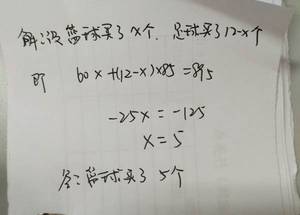 解:设篮球买了x个，足球买了12-x个
即 60x+(12-x)×85=895
-25x=-125
x=5
答:篮球买了5个